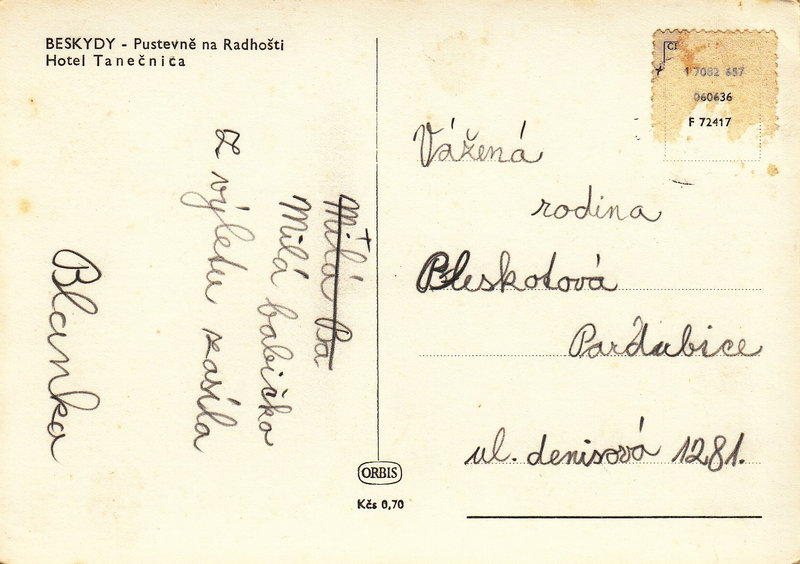 BESKYDY - Pustevně na Radhošti
Hotel Tanečnica
Milá Ba
Milá babičko
Z výletu zasíla
Blanka
1 7082 657
060636
F 72417
Vážená
rodina
Bleskotová
Pardubice
ul. denisová 1281.
ORBIS
Kčs 0,70